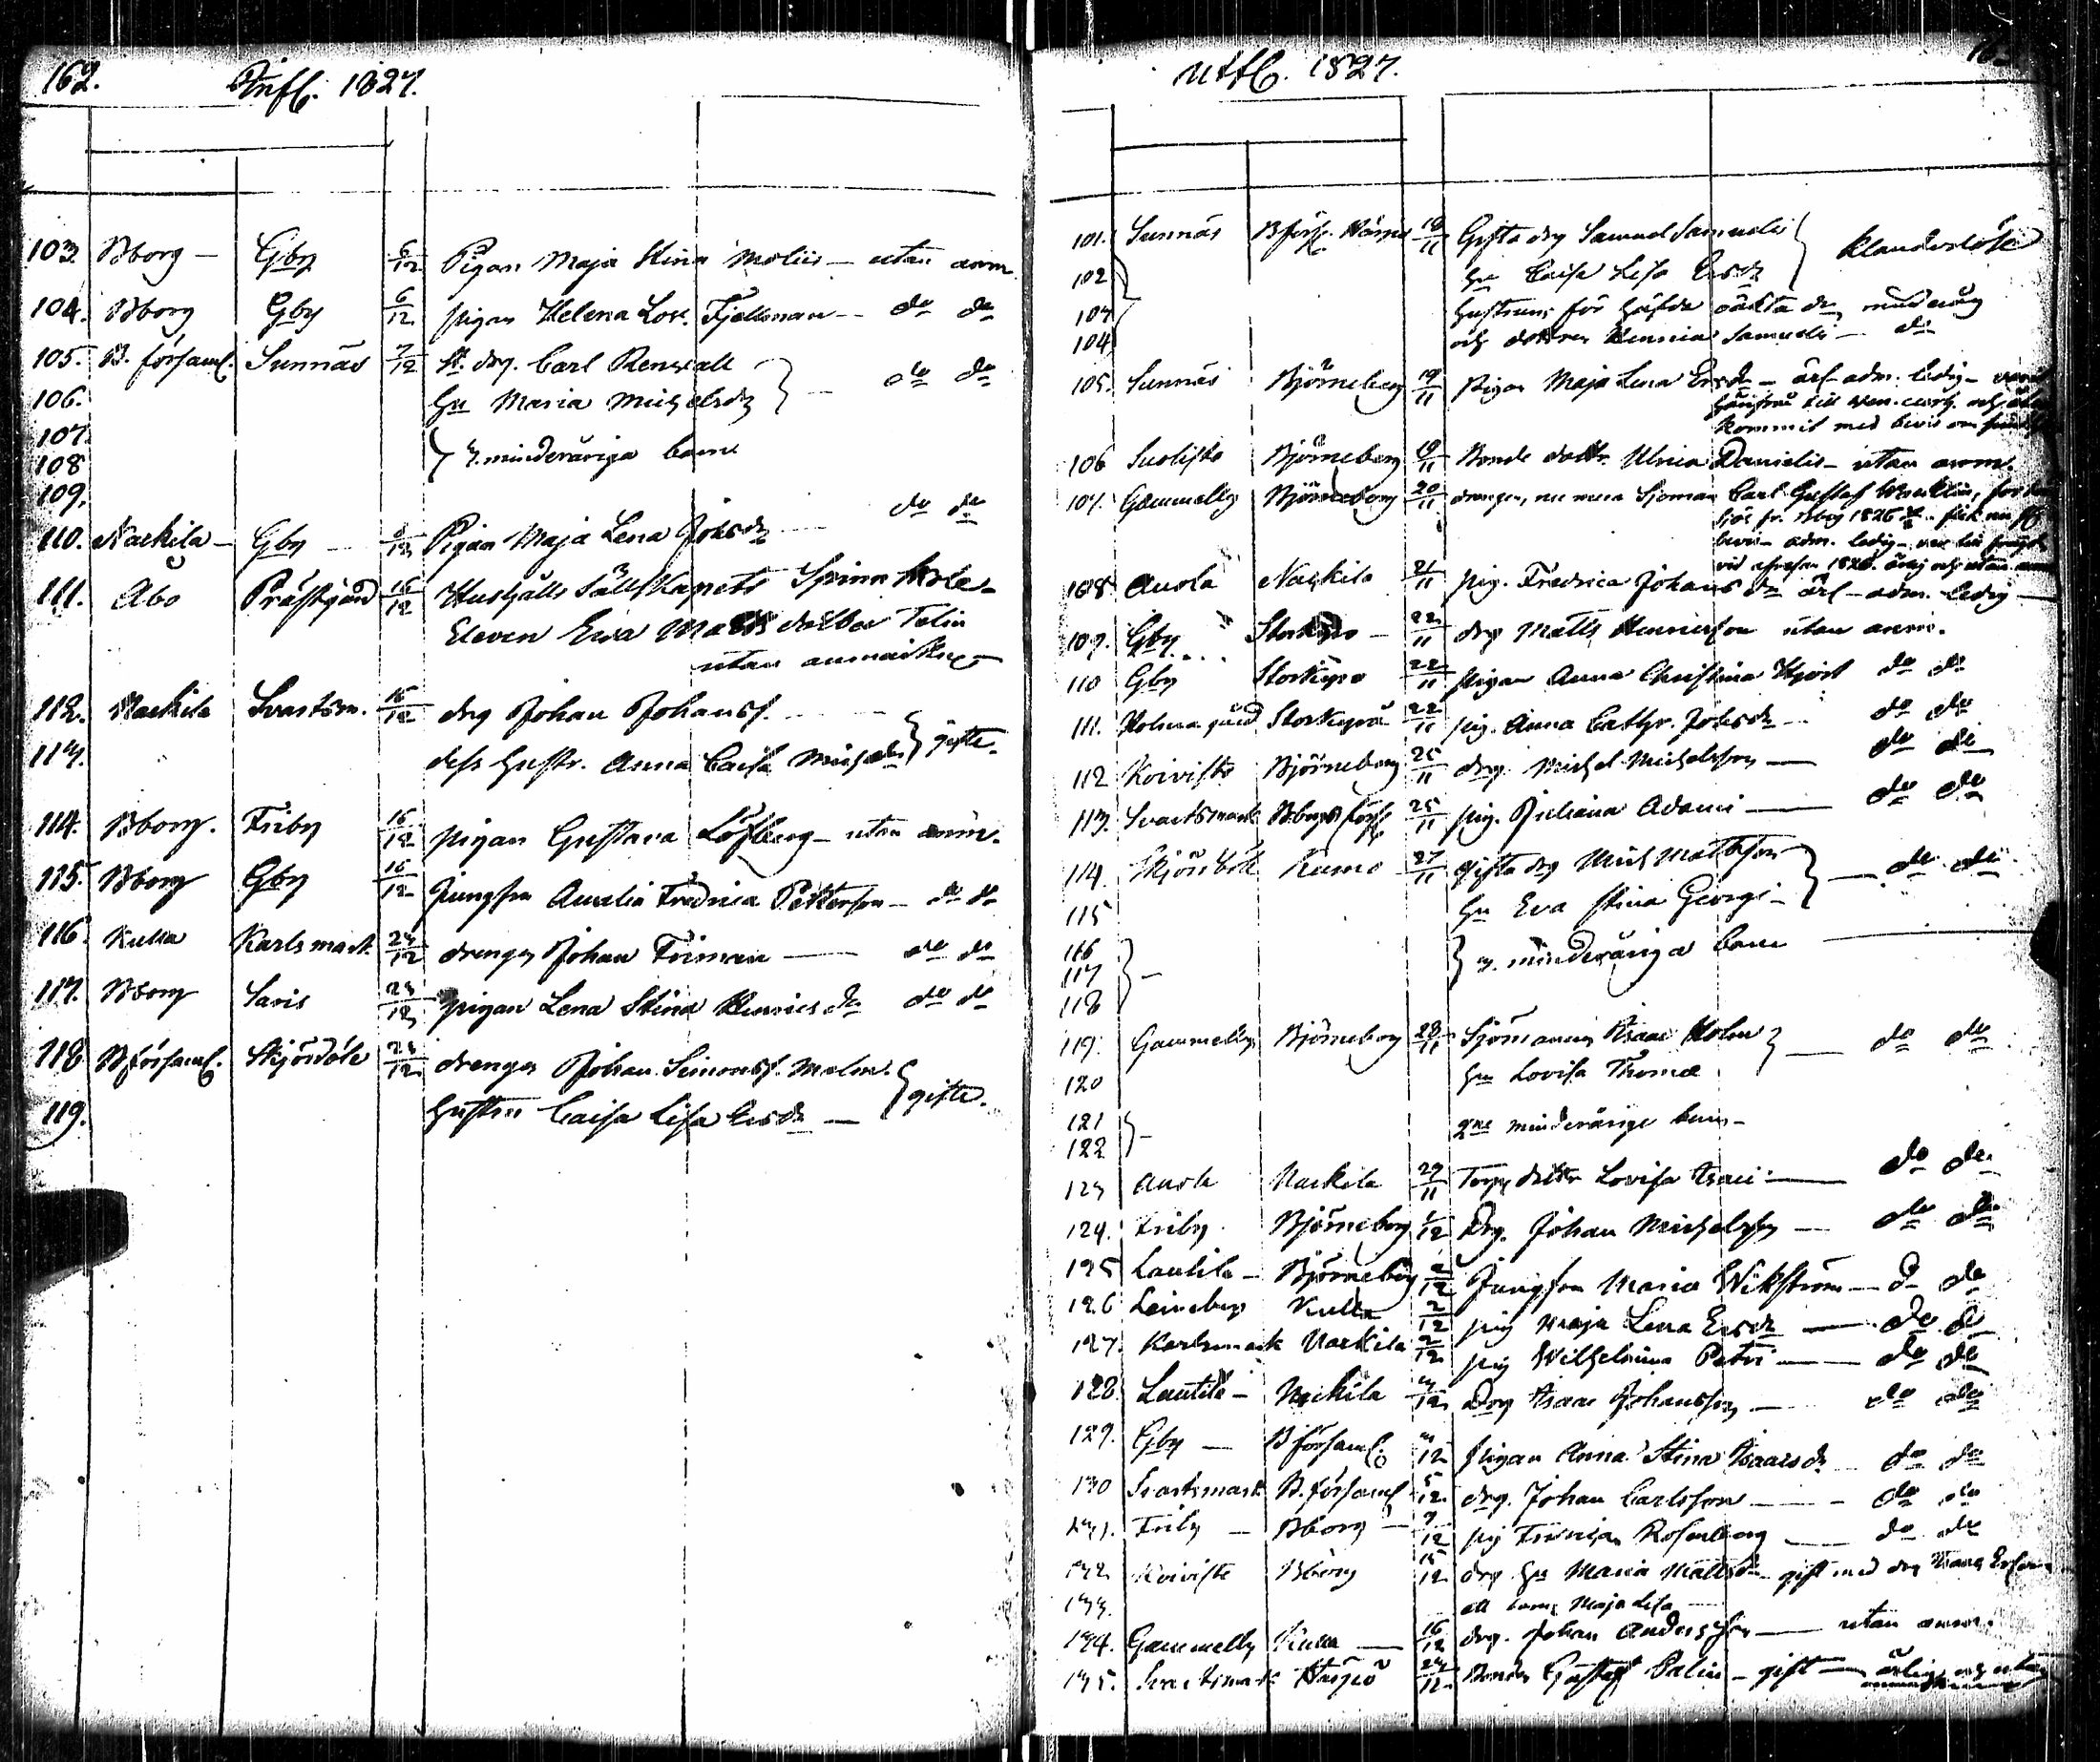 162. Infl. 1827.
103. Bborg — Gby 6/12 Pigan Maja Stina Molin — utan anm
104. Bborg Gby 6/12 pigan Helena Lov. Fjellman — do do
105. B. församl. Sunnäs 7/12 dräg. Carl Renvall
106. Hu Maria Michelsdr } — do do
107.
108 } 3. minderåriga barn
109.
110. Nackila — Gby — /12 Pigan Maja Lena Johsdr — do do
111. Åbo Prästgård 15/12 Hushålls Sällskapets Spinn Skole-
Eleven Eva Matts dotter Telin
utan anmärkn
112. Nackila Svartsm. 15/12 drg Johan Johanss.
113. dess hustr. Anna Caisa Michelsdr } gifte.
114. Bborg. Friby 16/12 pigan Gustava Löfberg — utan anm.
115. Bborg Gby 16/12 Jungfru Aurelia Fredrica Petterson — do do
116. Kulla Karlsmark 24/12 drengen Johan Friman — do do
117. Bborg Saris 24/12 pigan Lena Stina Henricsdr do do
118 B församl. 24/12 drengen Johan Simonss. Malm.
119. hustrun Caisa Lisa Ersdr — } gifte.
Uttl. 1827.
101. Sunnäs B förs. 19/11 Gifta drg Samuel Samuels
102 Hu Caisa Lisa Ersdr } klanderlöse
103 Hustruns för
104 och dottren Henrica Samuels — do
105. Sunnäs Björneborg 19/11 Pigan Maja Lena Ersdr — ärl. adm. ledig —
kommit med bevis om
106 Björneborg 19/11 Bonde dottr. Ulrica Danielis — utan anm.
107. Gammelby Björneborg 20/11 drengen, nu mera Sjöman Carl Gustaf
bevis — adm. ledig —
108 Anola Nackila 21/11 pig. Fredrica Johansdr ärl — adm. ledig —
109. Gby Storkyro — 22/11 drg Matts Henricsson utan anm.
110 Gby Storkyro 22/11 pigan Anna Christina Hjort do do
111. Holmagård Storkyro 22/11 pig. Anna Cathr. Johsdr — do do
112 Koivisto Björneborg 25/11 drg. Michel Michelsson — do do
113. Svartsmark 25/11 pig. Juliana Adami — do do
114. Kumo 27/11 gifta drg Mich Mattsson
115 Hu Eva Stina Georgi — } — do do
116
117 } — } 3. minderåriga barn
118
119. Gammelby Björneborg 28/11 Sjömannen Isaac Holm
120 Hu Lovisa Thomæ } — do do
121 2ne minderårige barn —
122 } —
123 Anola Nackila 29/11 Torp dottr Lovisa Isaci — do do
124. Friby Björneborg 1/12 Drg. Johan Michelsson — do do
125 Lautila — Björneborg 2/12 Jungfru Maria Wikström — do do
126 Leineberg Kulla 2/12 pig Maja Lena Ersdr — do do
127. Karlsmark Nackila 2/12 pig Wilhelmina Petri — do do
128. Lautila — Nackila 3/12 Drg Isaac Johansson — do do
129. Gby — B församl. 3/12 pigan Anna Stina Isaacsdr do do
130 Svartsmark B. församl 5/12 drg. Johan Carlsson — do do
131. Friby — Bborg — 7/12 pig Fredrica Rosenberg — do do
132 Koivisto Bborg 15/12 drg Hu Maria Mattsdr — gift med drg Isaac
133. ett barn Maja Lisa —
134. Gammelby Kulla — 16/12 drg. Johan Andersson — utan anm.
135. Svartsmark 24/12 Bonden Gustaf Palin — gift — ärlig och utan